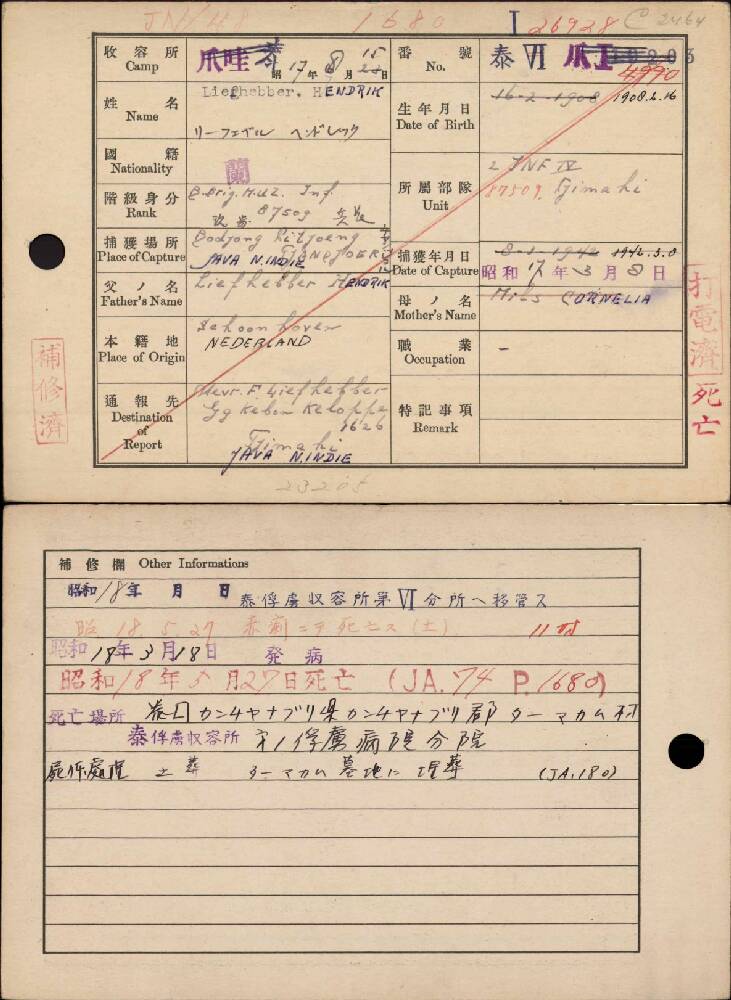 JA/48 1680 I 26928 C 2464
收容所 Camp 爪哇 泰 昭17年8月15日
番號 No. 泰 VI 4990
姓名 Name Liefhebber, HENDRIK
リーフェベル ヘンドレック
生年月日 Date of Birth 16-2-1908 1908.2.16
國籍 Nationality 蘭
所屬部隊 Unit 2 INF IV
87509. Tjimahi
階級身分 Rank Inf.
87509
捕獲場所 Place of Capture Bodjong
JAVA N.INDIE
捕獲年月日 Date of Capture 8-3-1942 1942.3.8
昭和17年3月8日
父ノ名 Father's Name Liefhebber HENDRIK
母ノ名 Mother's Name CORNELIA
本籍地 Place of Origin Schoonhoven
NEDERLAND
職業 Occupation -
通報先 Destination of Report Mevr. F. Liefhebber
Gg Kebon Keloppa
1626
Tjimahi
JAVA N.INDIE
特記事項 Remark
補修濟
打電濟
死亡
23205
補修欄 Other Informations
昭和18年 月 日 泰俘虜収容所第VI分所ヘ移管ス
昭 18.5.27 赤痢ニテ死亡ス(土)
昭和18年3月18日 発病
昭和18年5月27日死亡 (JA.74 P.1680)
死亡場所 泰国カンチヤナブリ県カンチヤナブリ郡ターマカム村
泰俘虜収容所 俘虜病院分院
屍体處理 土葬 ターマカム墓地に埋葬 (JA.180)